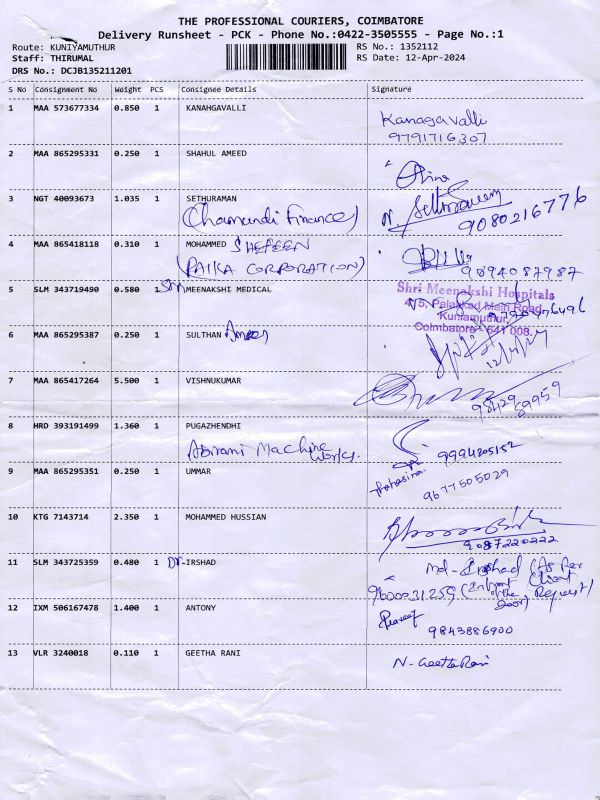 THE PROFESSIONAL COURIERS, COIMBATORE
Delivery Runsheet - PCK - Phone No.:0422-3505555 - Page No.:1
Route: KUNIYAMUTHUR
RS No.: 1352112
Staff: THIRUMAL
RS Date: 12-Apr-2024
DRS No.: DCJB135211201
S No Consignment No Weight PCS Consignee Details Signature
1 MAA 573677334 0.850 1 KANAHGAVALLI Kanagavalli
9791716307
2 MAA 865295331 0.250 1 SHAHUL AMEED
3 NGT 40093673 1.035 1 SETHURAMAN
(Chamundi Finance) 9080216776
4 MAA 865418118 0.310 1 MOHAMMED SHEFEEN
(RAIKA CORPORATION) 9894087987
5 SLM 343719490 0.580 1 Sri MEENAKSHI MEDICAL
Shri Meenakshi Hospitals
4/5, Palakkad Main Road,
Kuniamuthur,
Coimbatore - 641 008.
6 MAA 865295387 0.250 1 SULTHAN Ameer
12/4/24
7 MAA 865417264 5.500 1 VISHNUKUMAR
98429 89959
8 HRD 393191499 1.360 1 PUGAZHENDHI
Abirami Machine Works. 9994205152
9 MAA 865295351 0.250 1 UMMAR
9677505029
10 KTG 7143714 2.350 1 MOHAMMED HUSSIAN
9087220222
11 SLM 343725359 0.480 1 Dr-IRSHAD Md-Irshad (As Per Client Request)
9600031259
12 IXM 506167478 1.400 1 ANTONY
9843886900
13 VLR 3240018 0.110 1 GEETHA RANI N-Geetha Rani